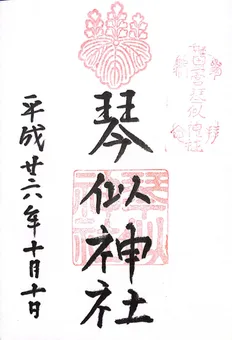 琴似神社
平成廿六年十月十日